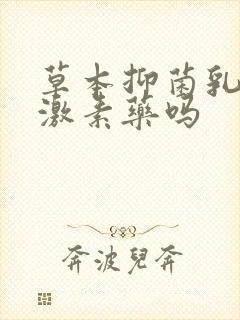 草本抑菌乳
激素药吗
奔波兒奔